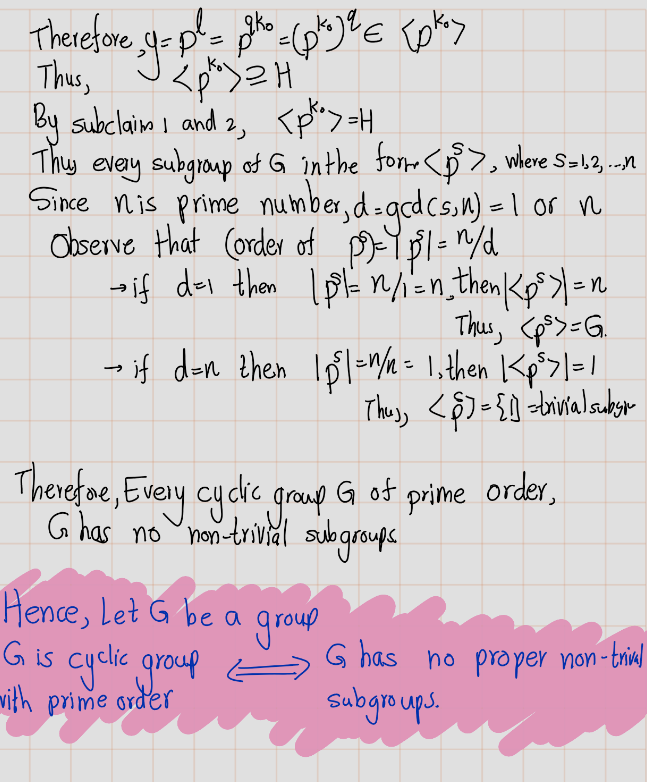 Therefore, y = p^l = p^{qk₀} = (p^{k₀})^q ∈ <p^{k₀}>
Thus, <p^{k₀}> ⊇ H
By subclaim 1 and 2, <p^{k₀}> = H
Thus every subgroup of G in the form <p^s>, where s=1,2,...,n
Since n is prime number, d = gcd(s,n) = 1 or n
Observe that (order of p^s) = |p^s| = n/d
→ if d=1 then |p^s| = n/1 = n, then |<p^s>| = n
Thus, <p^s> = G.
→ if d=n then |p^s| = n/n = 1, then |<p^s>| = 1
Thus, <p^s> = {1} = trivial subgr
Therefore, Every cyclic group G of prime order,
G has no non-trivial subgroups
Hence, Let G be a group
G is cyclic group ⟺ G has no proper non-trival
with prime order subgroups.